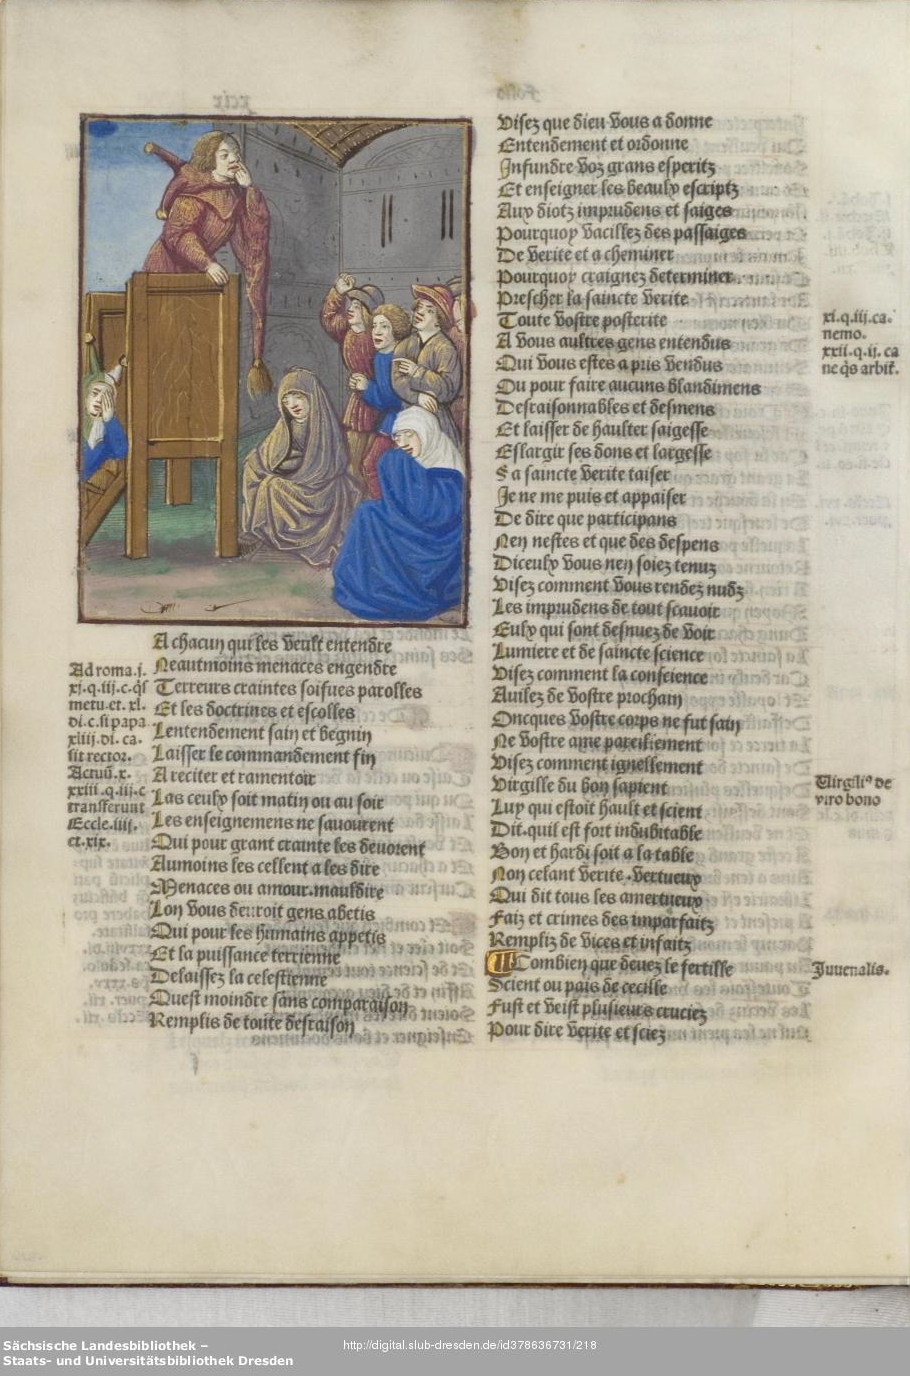 A chacun qui les veult entendre
Neautmoins menaces engendre
Terreurs craintes soifues parolles
Et les doctrines et escolles
Lentendement sain et begnin
Laisser le commandement fin
A reciter et ramentoir
Las ceulx soit matin ou au soir
Les enseignemens ne sauourent
Qui pour grant crainte les deuorent
Aumoins les cellent a les dire
Menaces ou amour mauldire
Lon vous deuroit gens abetis
Qui pour les humains appetis
Et la puissance terrienne
Delaissez la celestienne
Quest moindre sans comparaison
Remplis de toute desraison
Ad roma.j.
xj.q.iij.c.q̄s
metu.et.xl.
di.c.si papa
xliij.di.ca.
sit rector.
Actuū.x.
xxiii.q.iij.c
transferunt
Eccle.iiij.
et.xix.
Visez que dieu vous a donne
Entendement et ordonne
Infundre voz grans esperitz
Et enseigner les beaulx escriptz
Aux diotz imprudens et saiges
Pourquoy vacillez des passaiges
De verite et a cheminer
Pourquoy craignez determiner
Prescher la saincte verite
Toute vostre posterite
A vous aultres gens entendus
Qui vous estes a pris vendus
Ou pour faire aucuns blandimens
Desraisonnables et desmens
Et laisser de haulter saigesse
Eslargir ses dons et largesse
Sa saincte verite taiser
Je ne me puis et appaiser
De dire que participans
Nen nestes et que des despens
Diceulx vous nen soiez tenuz
Visez comment vous rendez nudz
Les imprudens de tout scauoir
Eulx qui sont desnuez de voir
Lumiere et de saincte science
Visez comment la conscience
Auilez de vostre prochain
Oncques vostre corps ne fut sain
Ne vostre ame pareillement
Visez comment ignellement
Virgille du bon sapient
Luy qui estoit hault et scient
Dit.quil est fort indubitable
Bon et hardi soit a la table
Non celant verite.vertueux
Qui dit tous les amertueux
Faiz et crimes des imparfaitz
Rempliz de vices et infaitz
Combien que deuez le fertille
Scient ou pais de cecille
Fust et veist plusieurs cruciez
Pour dire verite et sciez
xi.q.iij.ca.
nemo.
xxii.q.ij.ca
ne q̄s arbit̄.
Virgiliꝰ de
viro bono
Juuenalis.
Sächsische Landesbibliothek –
Staats- und Universitätsbibliothek Dresden
http://digital.slub-dresden.de/id378636731/218